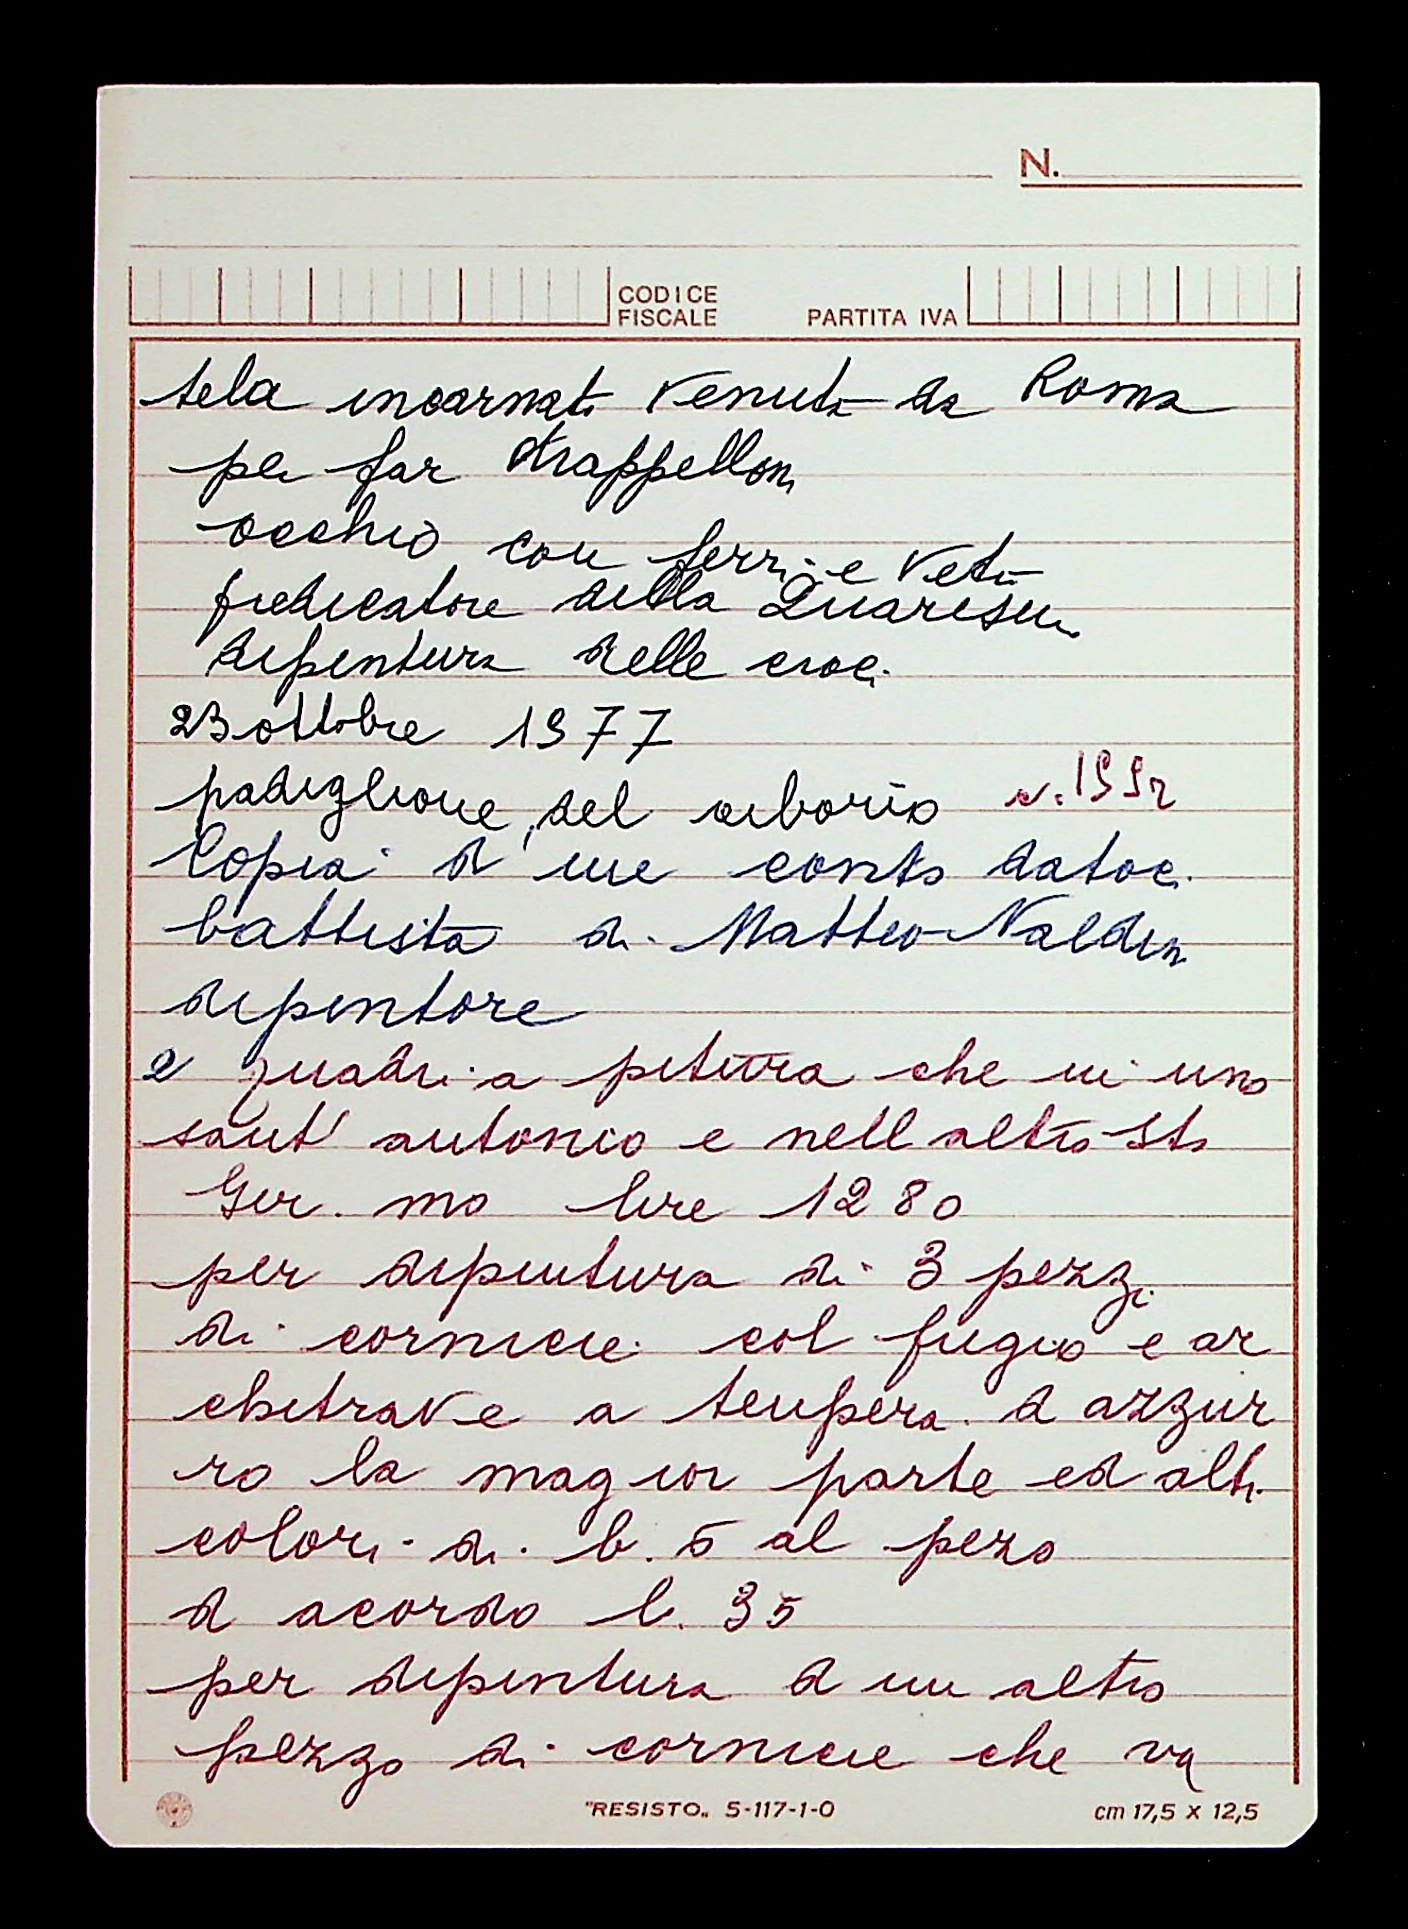 N.
CODICE
FISCALE PARTITA IVA
tela incarnata venuta da Roma
per far drappelloni
occhio con ferri e vetri
predicatore della Quaresima
dipintura delle croci
23 ottobre 1977
padiglione del ciborio
Copia di un conto dato
battista di Matteo Naldini
dipintore
2 quadri a pittura che in uno
sant' antonio e nell altro Sto
Gir.mo lire 1280
per dipintura di 3 pezzi
di cornicie col fregio e ar
chitrave a tempera d azzur
ro la magior parte ed altri
colori di b. 5 al pezo
d acordo l. 35
per dipintura d un altro
pezzo di cornicie che va
"RESISTO" S-117-1-0 cm 17,5 x 12,5